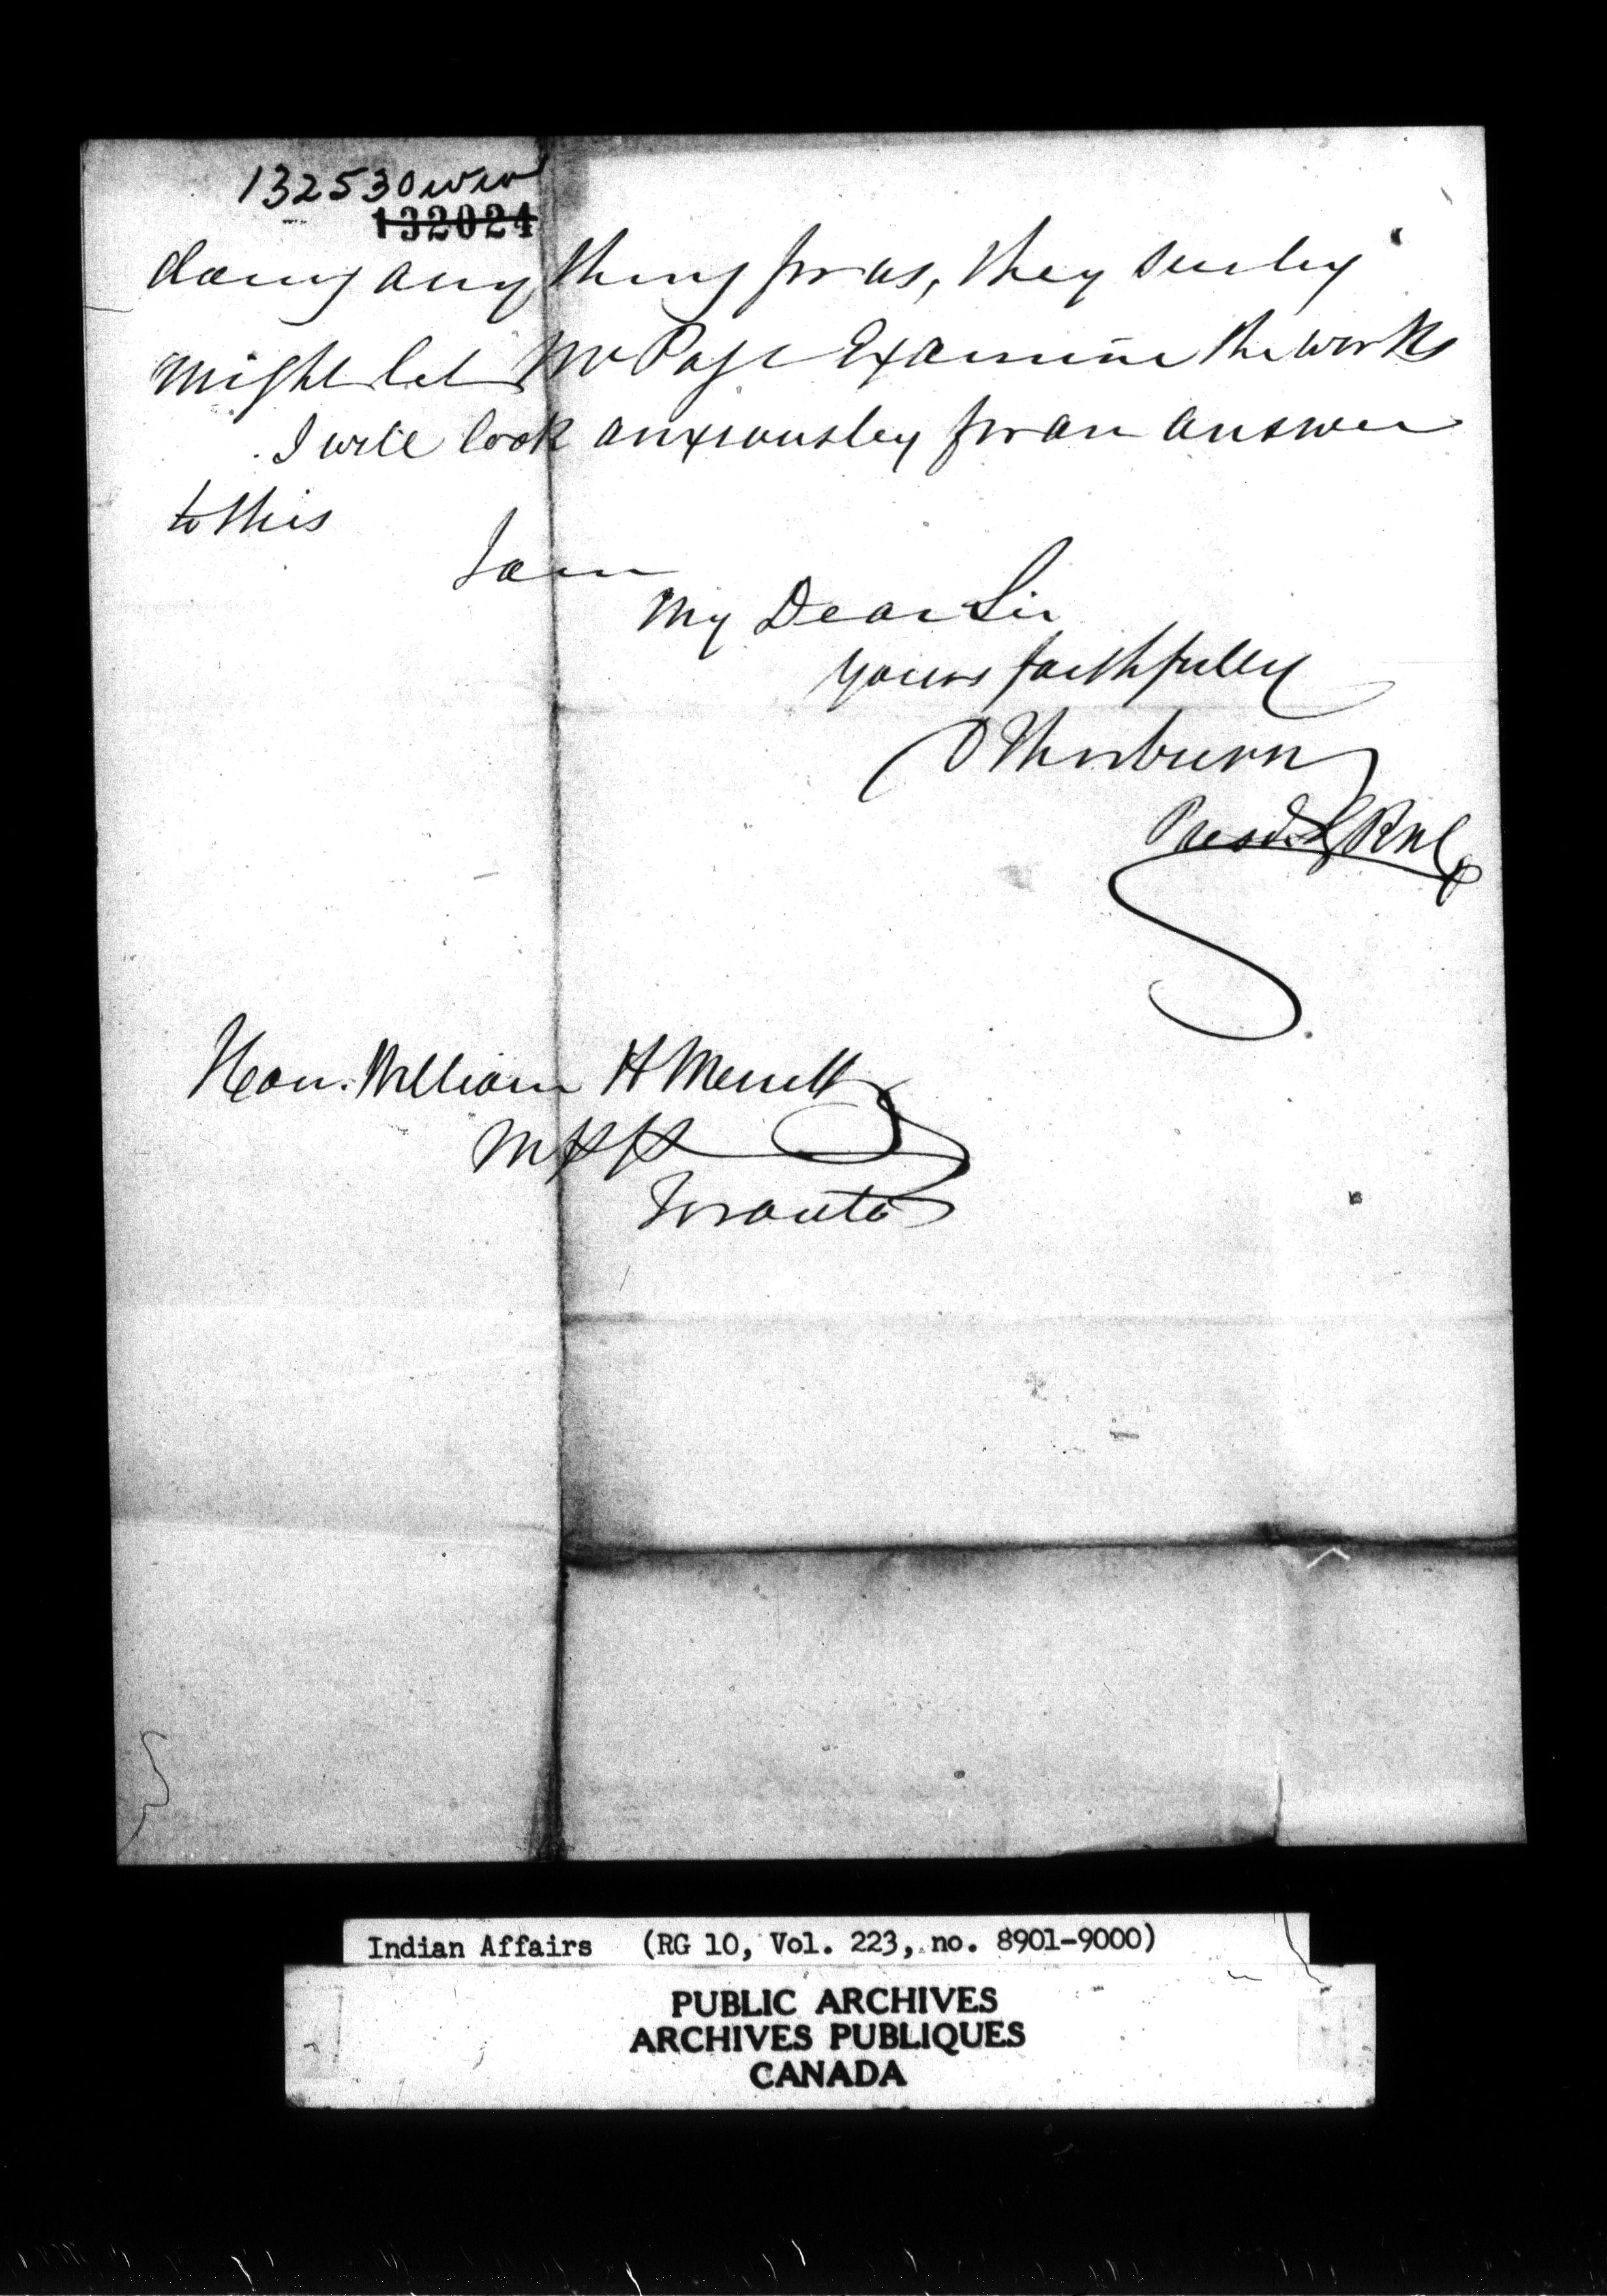 132530
132024
doing any thing for us, they surely
might let Mr Page Examine the works
I will look anxiously for an answer
to this
I am
My Dear Sir
yours faithfully
D Thorburn
Presdt G R N Co
Hon. William H Merritt
MPP
Toronto
Indian Affairs (RG 10, Vol. 223, no. 8901-9000)
PUBLIC ARCHIVES
ARCHIVES PUBLIQUES
CANADA